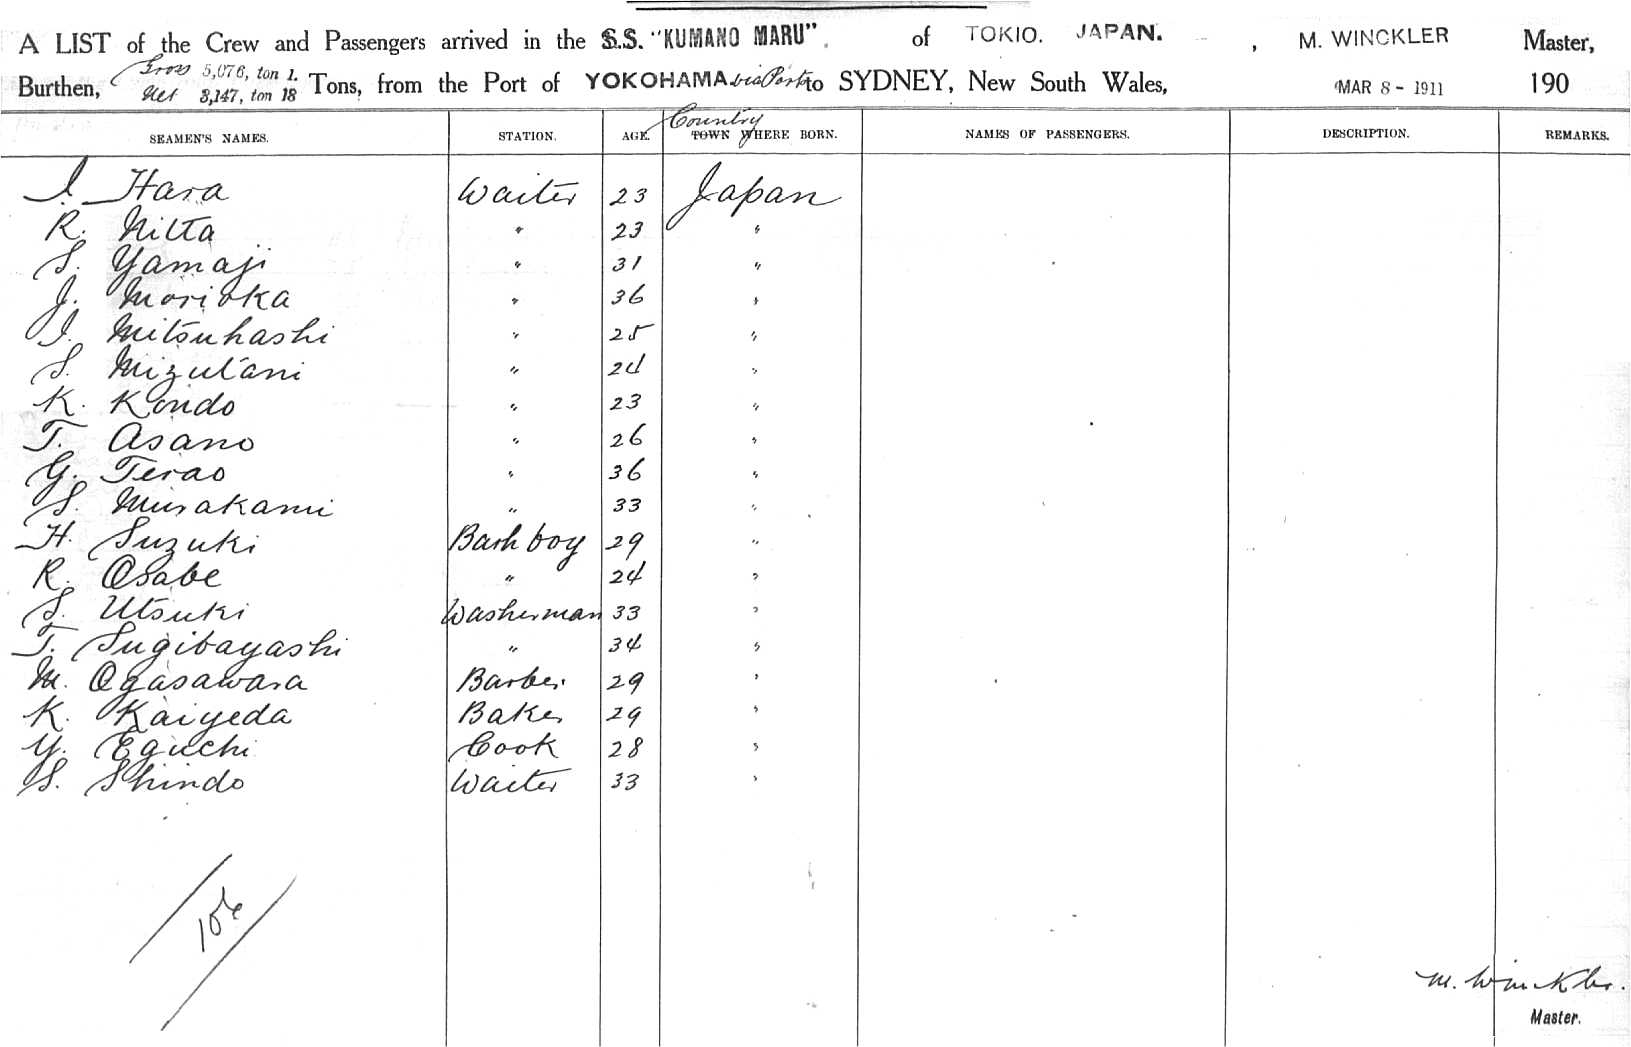 A LIST of the Crew and Passengers arrived in the S.S. "KUMANO MARU". of TOKIO. JAPAN. , M. WINCKLER Master,
Burthen, Gross 5,076, ton 1. Net 3,147, ton 18 Tons, from the Port of YOKOHAMA via Ports to SYDNEY, New South Wales, MAR 8 - 1911 190
SEAMEN'S NAMES. STATION. AGE. Country TOWN WHERE BORN. NAMES OF PASSENGERS. DESCRIPTION. REMARKS.
I. Hara Waiter 23 Japan
R. Nitta " 23 "
S. Yamaji " 31 "
J. Morioka " 36 "
I. Mitsuhashi " 25 "
S. Mizutani " 24 "
K. Kondo " 23 "
T. Asano " 26 "
G. Terao " 36 "
S. Murakami " 33 "
H. Suzuki Bath boy 29 "
R. Osabe " 24 "
S. Utsuki Washerman 33 "
T. Sugibayashi " 34 "
M. Ogasawara Barber 29 "
K. Kaiyeda Baker 29 "
Y. Eguchi Cook 28 "
S. Shindo Waiter 33 "
M. Winckler.
Master.